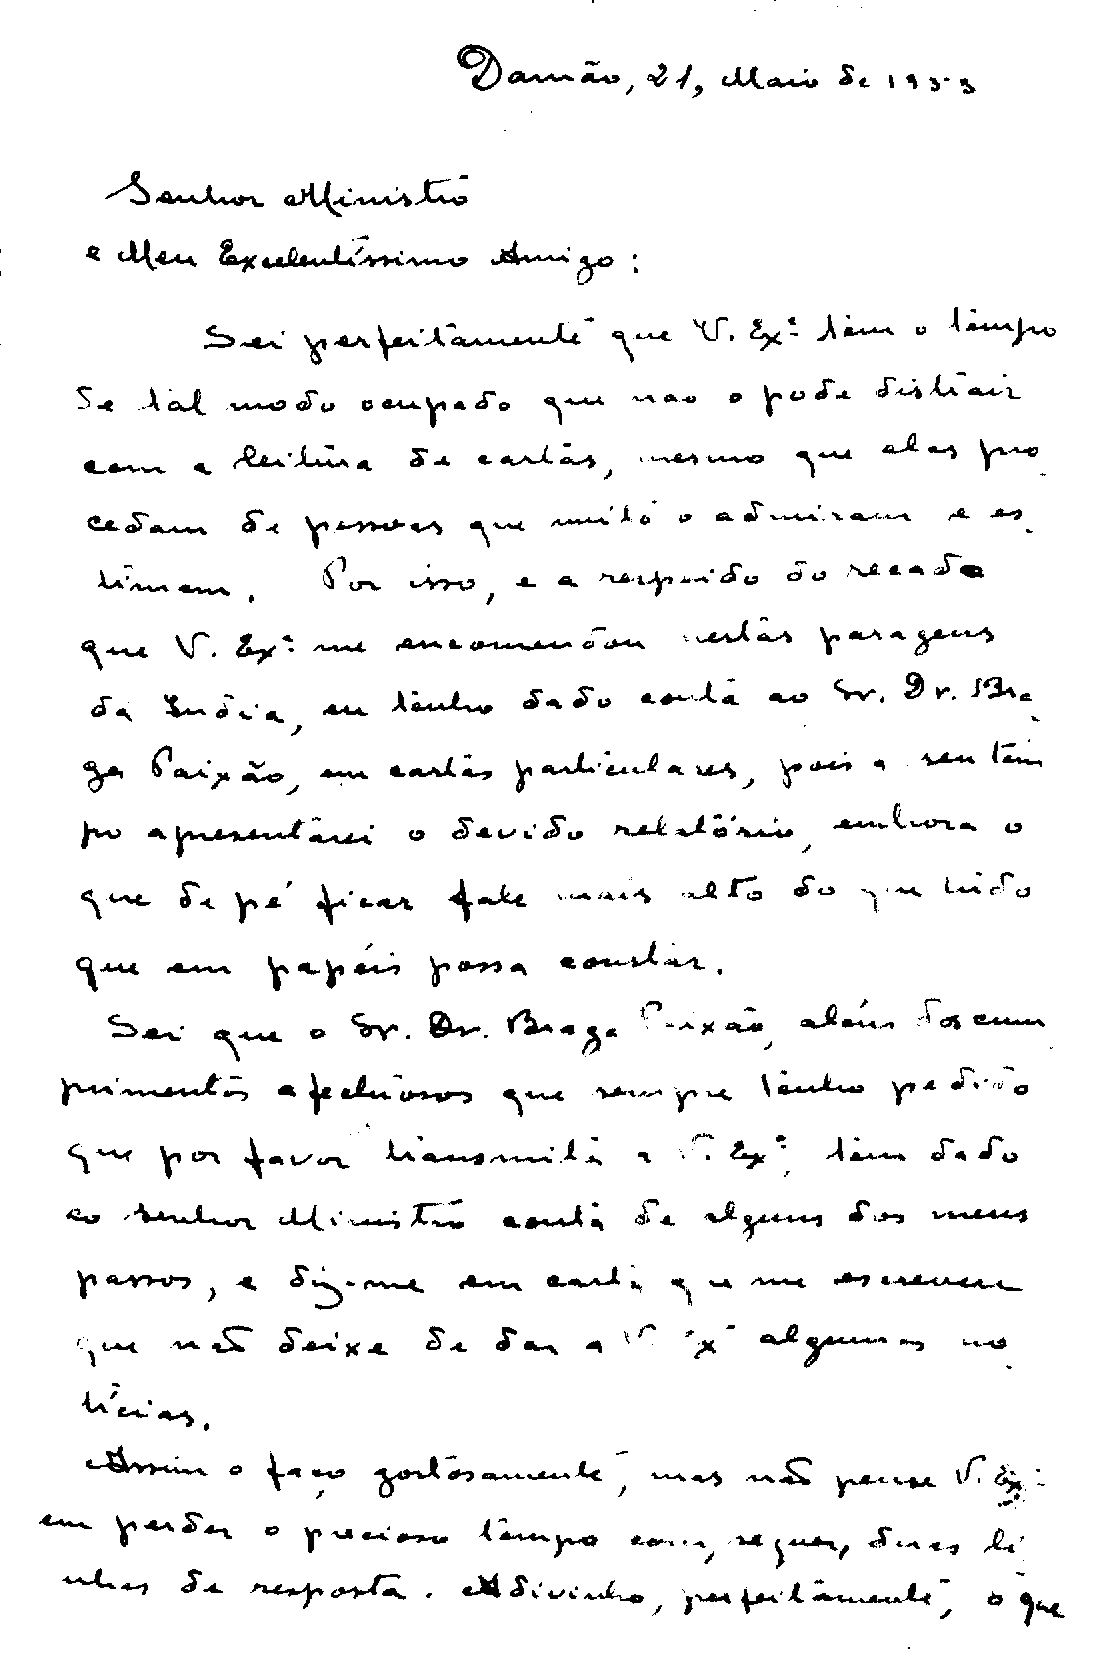 Damão, 21, Maio de 1953
Senhor Ministro
e Meu Excelentíssimo Amigo:
Sei perfeitamente que V. Exª têm o tempo
de tal modo ocupado que não o pode distrair
com a leitura de cartas, mesmo que elas pro
cedam de pessoas que muito o admiram e es
timam. Por isso, e a respeito do recado
que V. Exª me encomendou nestas paragens
da India, eu tenho dado conta ao Sr. Dr. Bra
ga Paixão, em cartas particulares, pois a seu tem
po apresentarei o devido relatório, embora o
que de pé ficar fale mais alto do que tudo
que em papéis possa constar.
Sei que o Sr. Dr. Braga Paixão, além dos cum
primentos afectuosos que sempre tenho pedido
que por favor transmita a V. Exª, têm dado
ao Senhor Ministro conta de alguns dos meus
passos, e diz-me em carta que me escreveu
que não deixe de dar a V. Exª algumas no
tícias.
Assim o faço gostosamente, mas não pense V. Exª
em perder o precioso tempo com, sequer, duas li
nhas de resposta. Adivinho, perfeitamente, o que